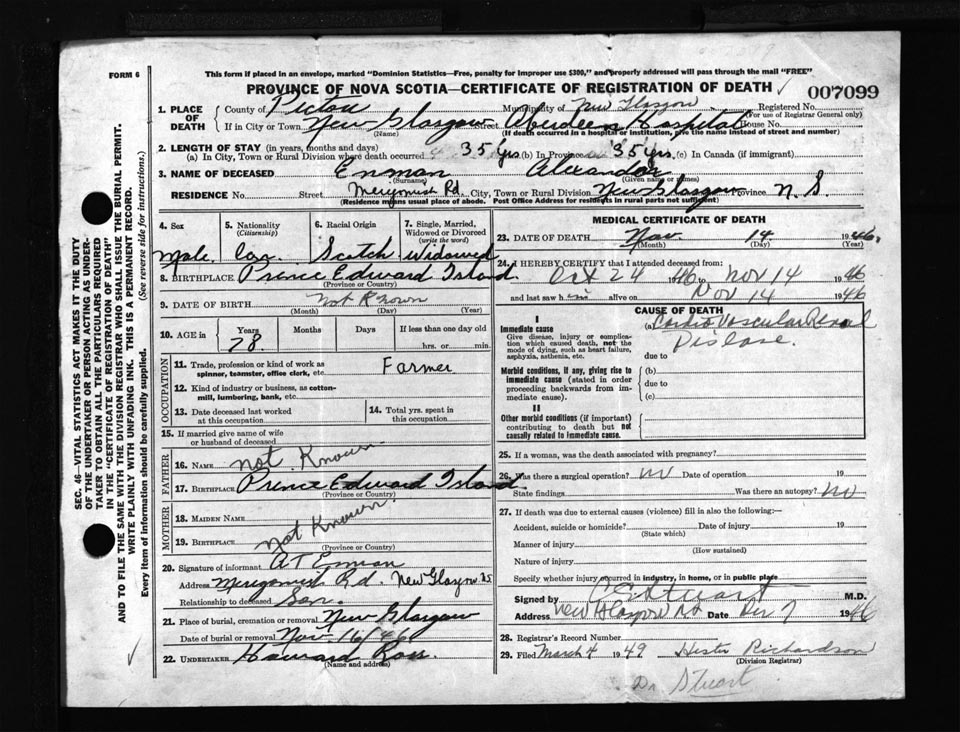 FORM 6
This form if placed in an envelope, marked "Dominion Statistics—Free, penalty for improper use $300," and properly addressed will pass through the mail "FREE"
PROVINCE OF NOVA SCOTIA—CERTIFICATE OF REGISTRATION OF DEATH ✓ 007099
1. PLACE OF DEATH
County of Pictou Municipality of New Glasgow Registered No.
(For use of Registrar General only)
If in City or Town New Glasgow Street Aberdeen Hospital House No.
(Name) (If death occurred in a hospital or institution, give the name instead of street and number)
2. LENGTH OF STAY (in years, months and days)
(a) In City, Town or Rural Division where death occurred 35 yrs (b) In Province 35 yrs. (c) In Canada (if immigrant)
3. NAME OF DECEASED Enman Alexander
(Surname) (Given name or names)
RESIDENCE No. Street Merigomish Rd. City, Town or Rural Division New Glasgow Province N. S.
(Residence means usual place of abode. Post Office Address for residents in rural parts not sufficient)
SEC. 46—VITAL STATISTICS ACT MAKES IT THE DUTY
OF THE UNDERTAKER OR PERSON ACTING AS UNDER-
TAKER TO OBTAIN ALL THE PARTICULARS REQUIRED
IN THE "CERTIFICATE OF REGISTRATION OF DEATH"
AND TO FILE THE SAME WITH THE DIVISION REGISTRAR WHO SHALL ISSUE THE BURIAL PERMIT.
WRITE PLAINLY WITH UNFADING INK. THIS IS A PERMANENT RECORD.
Every item of information should be carefully supplied. (See reverse side for instructions.)
4. Sex 5. Nationality (Citizenship) 6. Racial Origin 7. Single, Married, Widowed or Divorced (write the word)
Male Can Scotch Widowed
8. BIRTHPLACE Prince Edward Island
(Province or Country)
9. DATE OF BIRTH Not Known
(Month) (Day) (Year)
10. AGE in Years Months Days If less than one day old
78. hrs. or min.
OCCUPATION
11. Trade, profession or kind of work as spinner, teamster, office clerk, etc. Farmer
12. Kind of industry or business, as cotton-mill, lumbering, bank, etc.
13. Date deceased last worked at this occupation
14. Total yrs. spent in this occupation
15. If married give name of wife or husband of deceased
FATHER
16. NAME not Known
17. BIRTHPLACE Prince Edward Island
(Province or Country)
MOTHER
18. MAIDEN NAME
19. BIRTHPLACE not Known
(Province or Country)
20. Signature of informant A T Enman
Address Merigomish Rd. New Glasgow NS
Relationship to deceased Son
21. Place of burial, cremation or removal New Glasgow
Date of burial or removal Nov. 16/46
22. UNDERTAKER Howard Ross.
(Name and address)
✓
MEDICAL CERTIFICATE OF DEATH
23. DATE OF DEATH Nov. 14 1946.
(Month) (Day) (Year)
24. I HEREBY CERTIFY that I attended deceased from:
Oct 24 1946 to Nov 14 1946
and last saw him alive on Nov 14 1946
CAUSE OF DEATH
I
Immediate cause (a) Cardio Vascular Renal
Give disease, injury or complication which caused death, not the mode of dying, such as heart failure, asphyxia, asthenia, etc. Disease.
due to
Morbid conditions, if any, giving rise to immediate cause (stated in order proceeding backwards from immediate cause). (b)
due to
(c)
II
Other morbid conditions (if important) contributing to death but not causally related to immediate cause.
25. If a woman, was the death associated with pregnancy?
26. Was there a surgical operation? no Date of operation 19
State findings Was there an autopsy? no
27. If death was due to external causes (violence) fill in also the following:—
Accident, suicide or homicide? Date of injury 19
(State which)
Manner of injury
(How sustained)
Nature of injury
Specify whether injury occurred in industry, in home, or in public place
Signed by Stuart M.D.
Address New Glasgow NS Date Dec 7 1946
28. Registrar's Record Number
29. Filed March 4 1949 Hester Richardson
(Division Registrar)
Dr Stuart